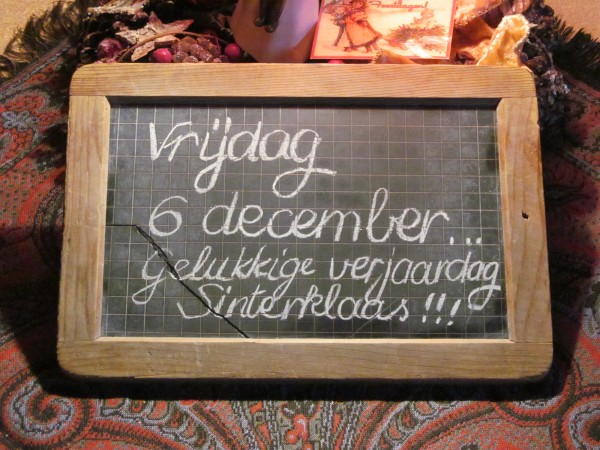 Feestdagen!
Vrijdag
6 december...
Gelukkige verjaardag
Sinterklaas!!!